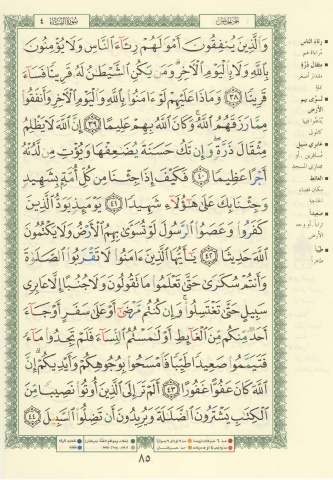 سورة النساء ٤
وَالَّذِينَ يُنفِقُونَ أَمْوَالَهُمْ رِئَاءَ النَّاسِ وَلَا يُؤْمِنُونَ
بِاللَّهِ وَلَا بِالْيَوْمِ الْآخِرِ وَمَن يَكُنِ الشَّيْطَانُ لَهُ قَرِينًا فَسَاءَ
قَرِينًا ٣٨ وَمَاذَا عَلَيْهِمْ لَوْ آمَنُوا بِاللَّهِ وَالْيَوْمِ الْآخِرِ وَأَنفَقُوا
مِمَّا رَزَقَهُمُ اللَّهُ وَكَانَ اللَّهُ بِهِمْ عَلِيمًا ٣٩ إِنَّ اللَّهَ لَا يَظْلِمُ
مِثْقَالَ ذَرَّةٍ وَإِن تَكُ حَسَنَةً يُضَاعِفْهَا وَيُؤْتِ مِن لَّدُنْهُ
أَجْرًا عَظِيمًا ٤٠ فَكَيْفَ إِذَا جِئْنَا مِن كُلِّ أُمَّةٍ بِشَهِيدٍ
وَجِئْنَا بِكَ عَلَىٰ هَٰؤُلَاءِ شَهِيدًا ٤١ يَوْمَئِذٍ يَوَدُّ الَّذِينَ
كَفَرُوا وَعَصَوُا الرَّسُولَ لَوْ تُسَوَّىٰ بِهِمُ الْأَرْضُ وَلَا يَكْتُمُونَ
اللَّهَ حَدِيثًا ٤٢ يَا أَيُّهَا الَّذِينَ آمَنُوا لَا تَقْرَبُوا الصَّلَاةَ
وَأَنتُمْ سُكَارَىٰ حَتَّىٰ تَعْلَمُوا مَا تَقُولُونَ وَلَا جُنُبًا إِلَّا عَابِرِي
سَبِيلٍ حَتَّىٰ تَغْتَسِلُوا وَإِن كُنتُم مَّرْضَىٰ أَوْ عَلَىٰ سَفَرٍ أَوْ جَاءَ
أَحَدٌ مِّنكُم مِّنَ الْغَائِطِ أَوْ لَامَسْتُمُ النِّسَاءَ فَلَمْ تَجِدُوا مَاءً
فَتَيَمَّمُوا صَعِيدًا طَيِّبًا فَامْسَحُوا بِوُجُوهِكُمْ وَأَيْدِيكُمْ إِنَّ
اللَّهَ كَانَ عَفُوًّا غَفُورًا ٤٣ أَلَمْ تَرَ إِلَى الَّذِينَ أُوتُوا نَصِيبًا مِّنَ
الْكِتَابِ يَشْتَرُونَ الضَّلَالَةَ وَيُرِيدُونَ أَن تَضِلُّوا السَّبِيلَ ٤٤
رئاء الناس
مراءاة لهم
مثقال ذرة
مقدار أصغر
نملة
عابري سبيل
الغائط
صعيدا
طيبا
طاهرا
٨٥